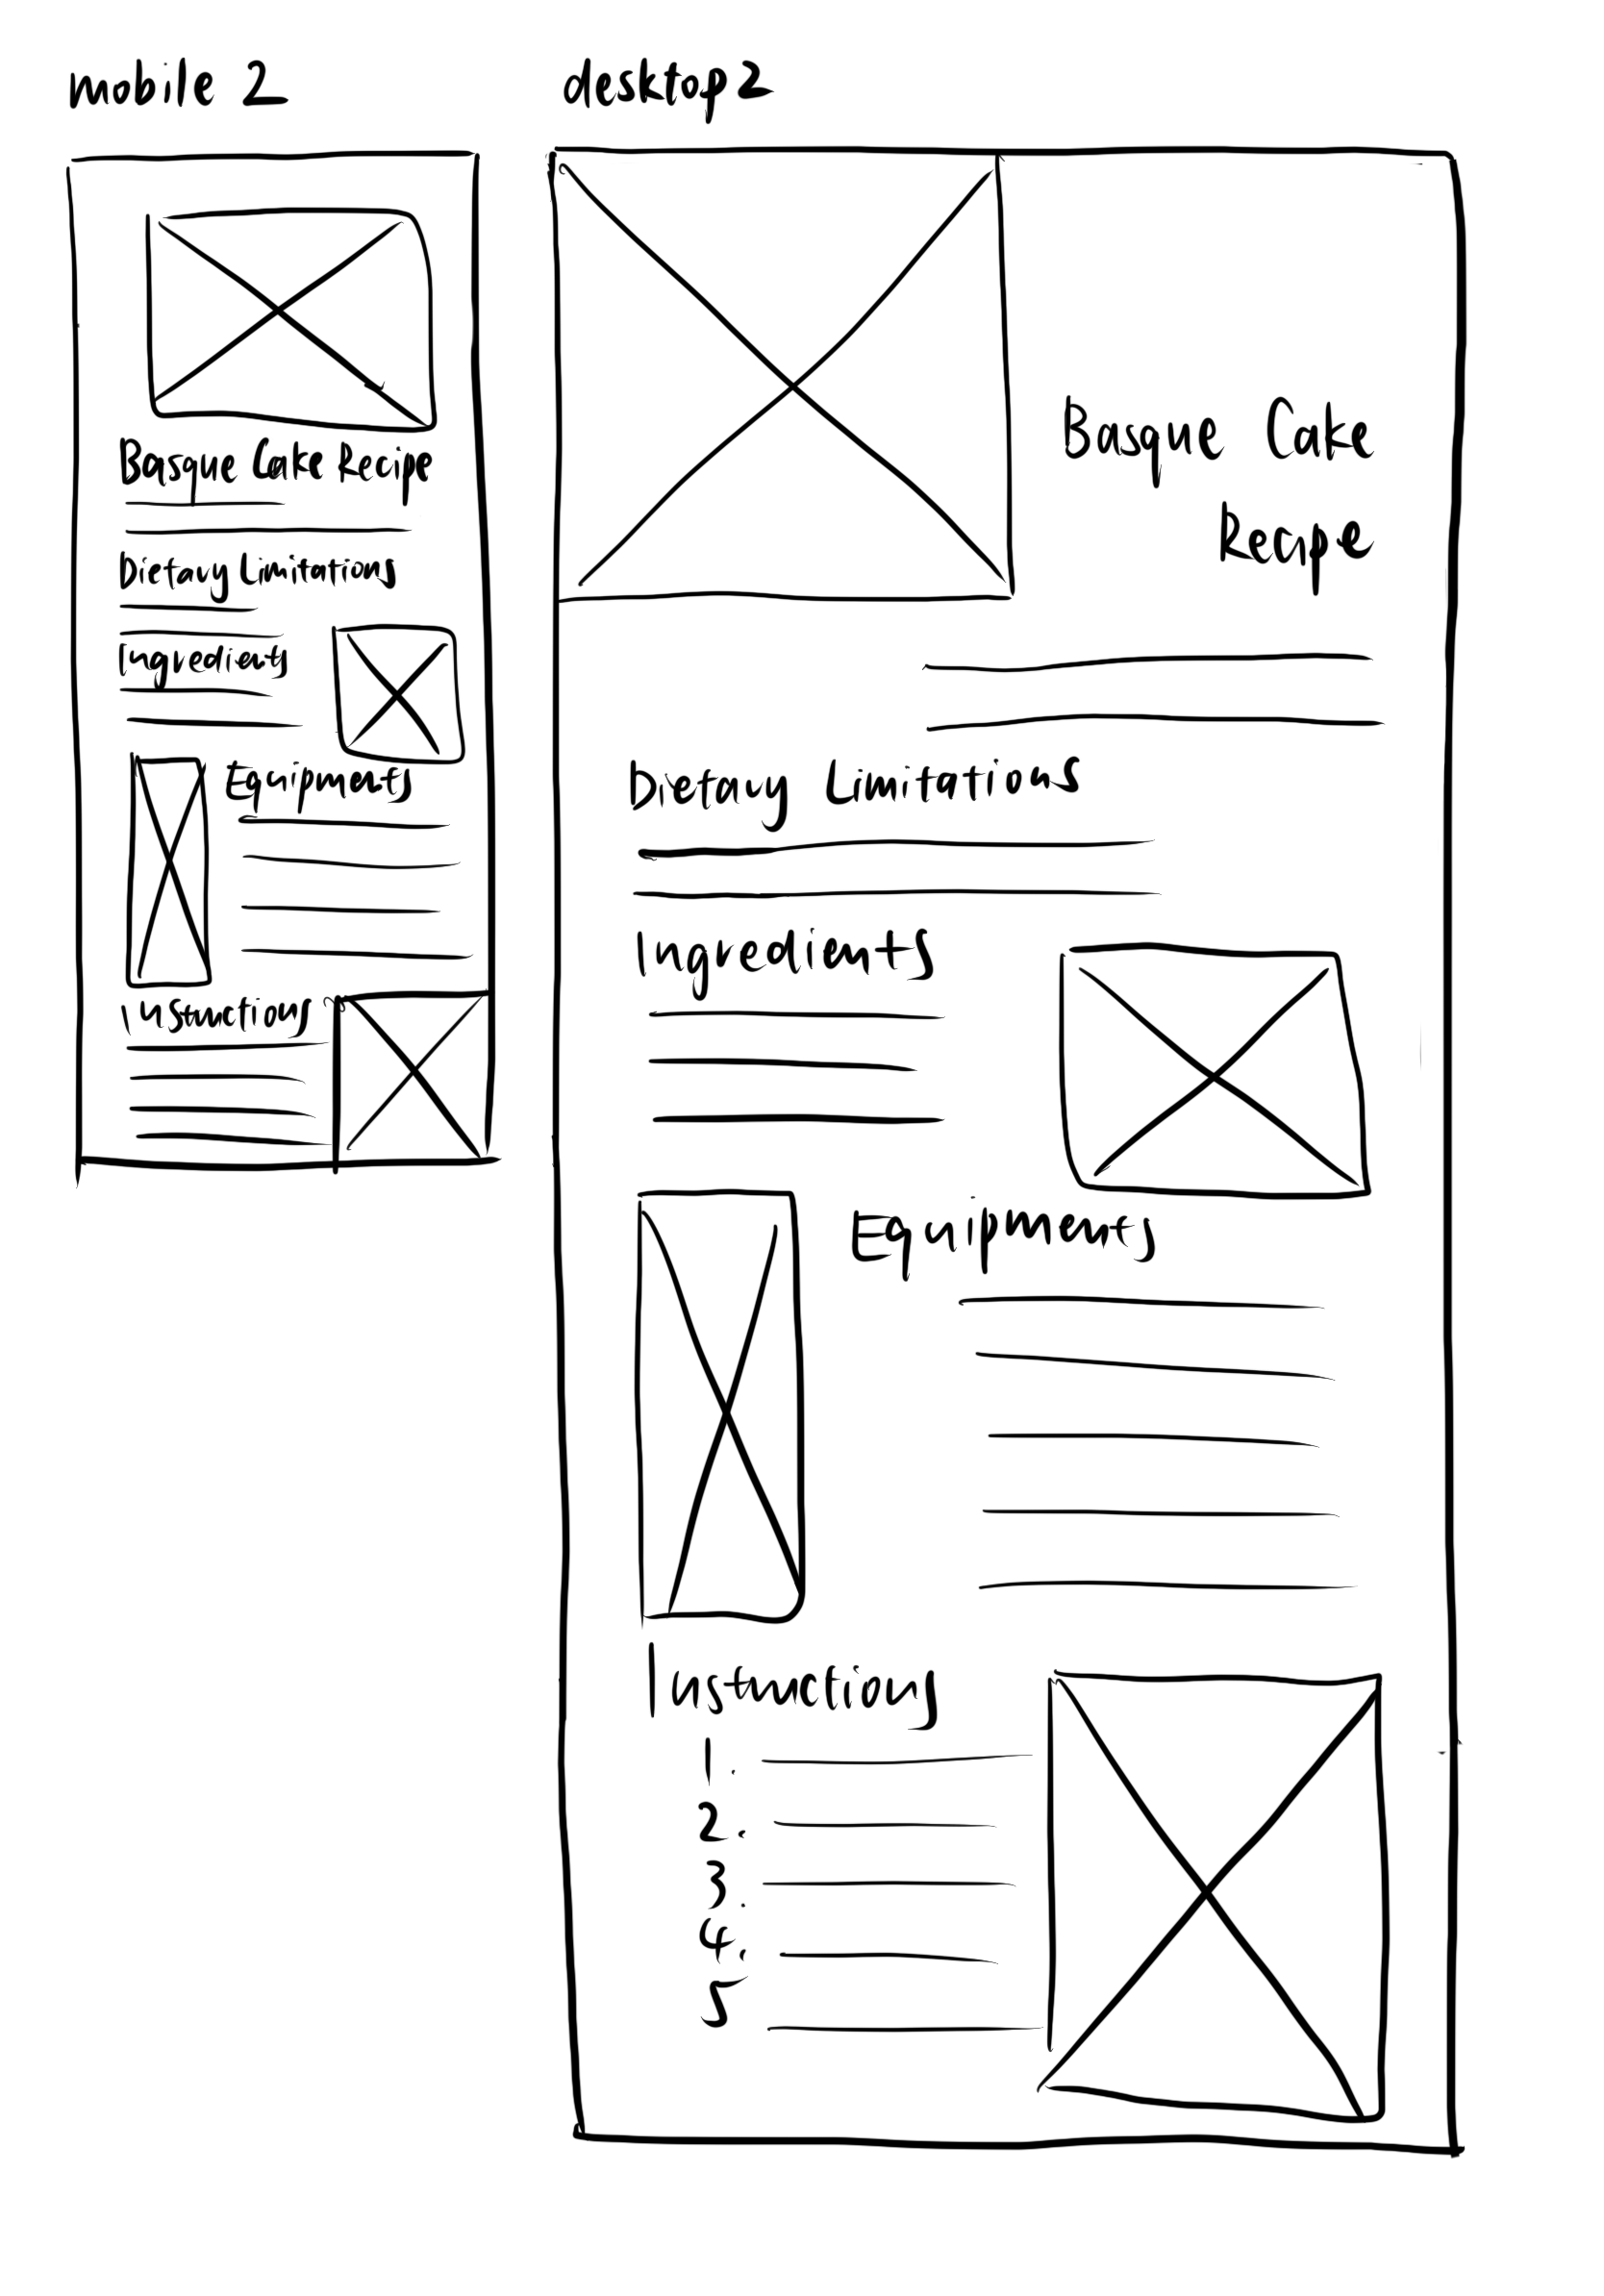 mobile 2
Basque Cake Recipe
Dietary Limitations
Ingredients
Equipments
Instructions
desktop2
Basque Cake
Recipe
Dietary Limitations
Ingredients
Equipments
Instructions
1.
2.
3.
4.
5